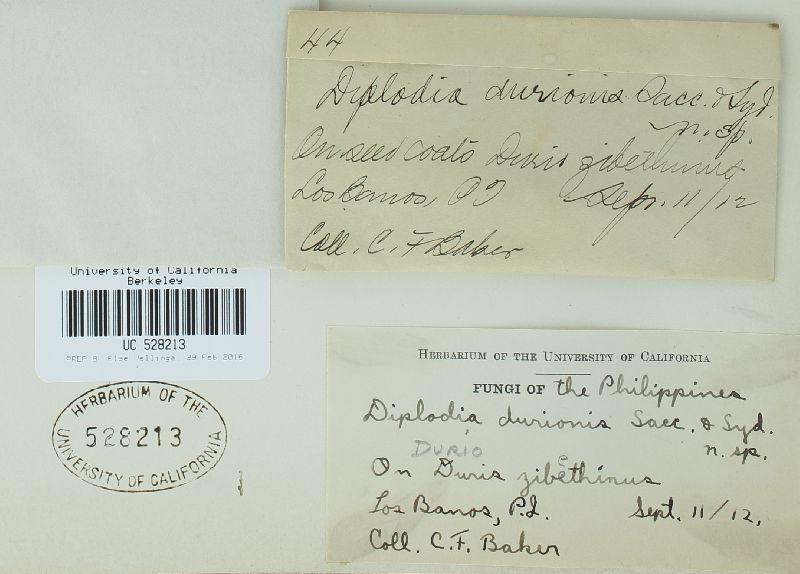 44
Diplodia durionis Sacc. & Syd.
n. sp.
On seed coats Duris zibethinus
Los Banos, PI Sep. 11/12
Coll. C. F Baker
University of California
Berkeley
UC 528213
PREP BY Else Vellinga, 29 Feb 2016
HERBARIUM OF THE
528213
UNIVERSITY OF CALIFORNIA
HERBARIUM OF THE UNIVERSITY OF CALIFORNIA
FUNGI OF the Philippines
Diplodia durionis Sacc. & Syd.
n. sp.
DURIO
On Duris zibethinus
Los Banos, P.I. Sept. 11/12.
Coll. C.F. Baker